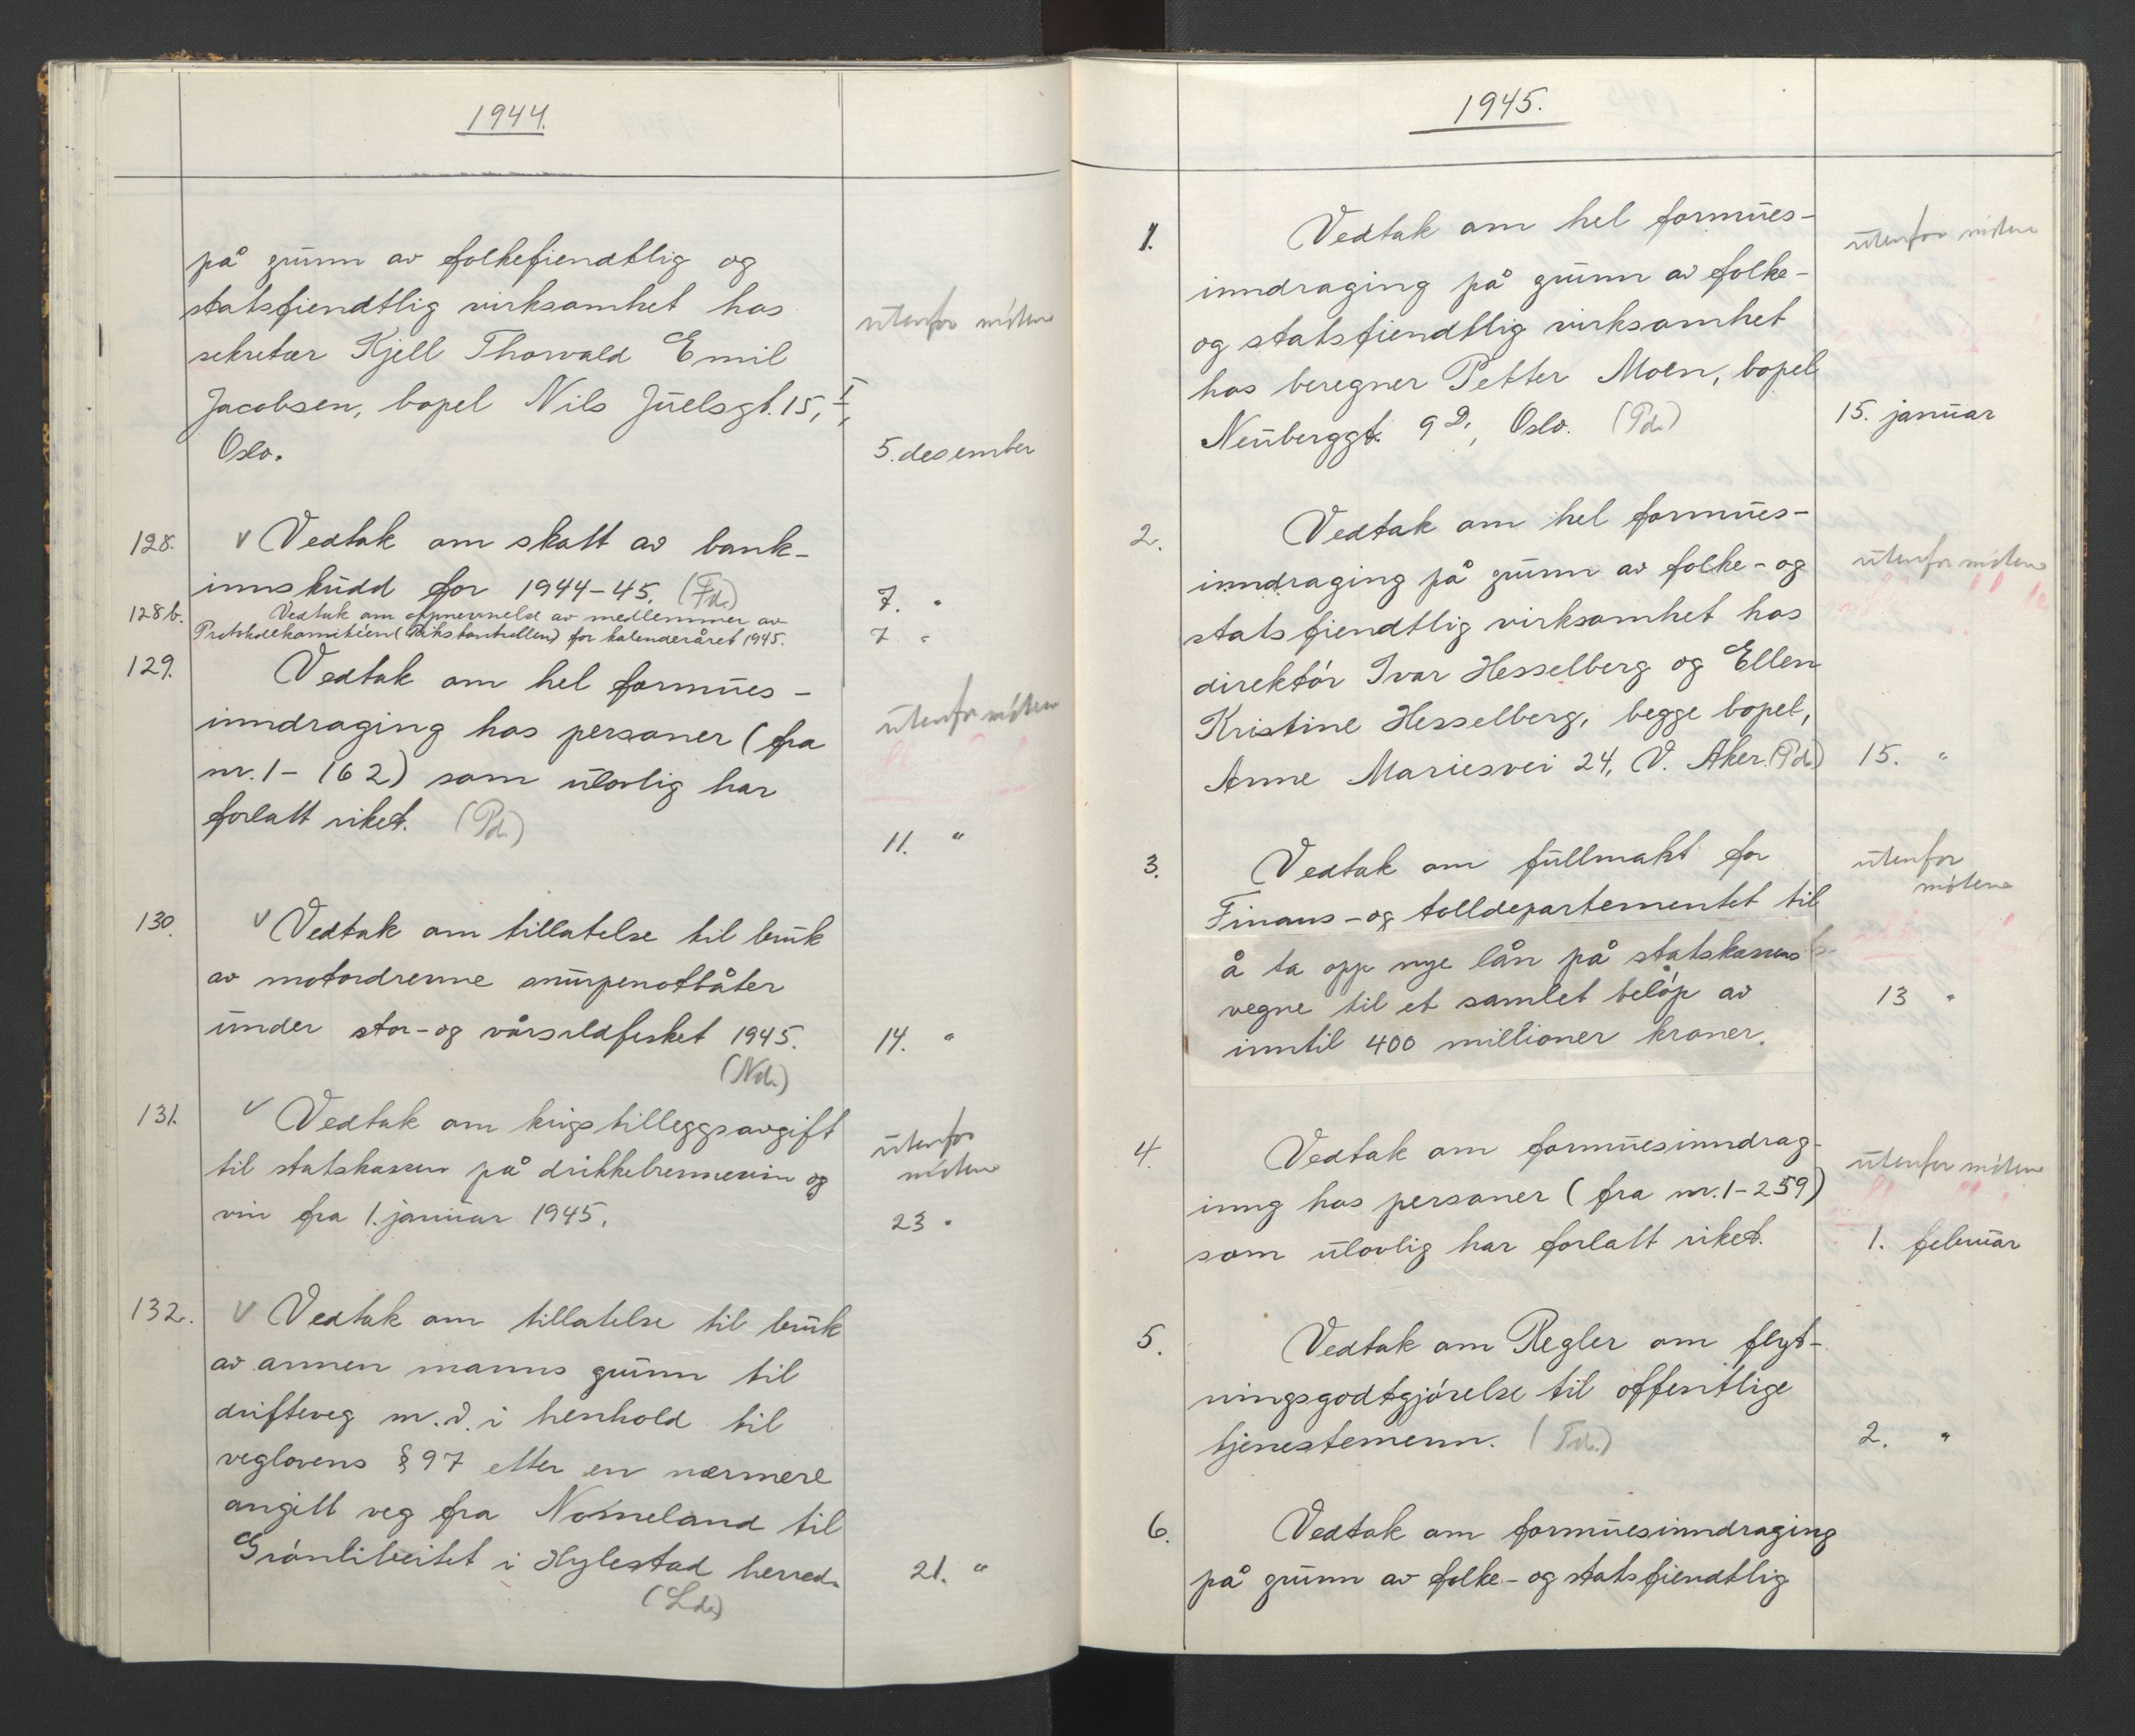 1944.
på grunn av folkefiendtlig og
statsfiendtlig virksomhet hos
utenfor møtene
sekretær Kjell Thorvald Emil
Jacobsen, bopel Nils Juelsgt. 15, I,
Oslo.
5. desember
128. V Vedtak om skatt av bank-
innskudd for 1944-45. (Fd.)
7. "
128b. Vedtak om oppnevneld av medlemmer av
Protokolkomitéen (Rikskontrollen) for kalenderåret 1945.
7 "
129. Vedtak om hel formues-
inndraging hos personer (fra
utenfor møtene
nr. 1 - 162) som ulovlig har
forlatt riket. (Pd.)
11. "
130. V Vedtak om tillatelse til bruk
av motordrevne snurpenotbåter
under stor- og vårsildfisket 1945.
14. "
(Nd.)
131. V Vedtak om krigstilleggsavgift
utenfor
møtene
til statskassen på drikkebrennevin og
vin fra 1. januar 1945.
23 "
132. V Vedtak om tillatelse til bruk
av annen manns grunn til
drifteveg m.v. i henhold til
veglovens § 97 etter en nærmere
angitt veg fra Nomeland til
i Hylestad herred.
21. "
(Ld.)
1945.
1. Vedtak om hel formues-
utenfor møtene
inndraging på grunn av folke-
og statsfiendtlig virksomhet
hos beregner Petter Moen, bopel
Neuberggt. 9 D., Oslo. (Pd.)
15. januar
2. Vedtak om hel formues-
utenfor møtene
inndraging på grunn av folke- og
statsfiendtlig virksomhet hos
direktør Ivar Hesselberg og Ellen
Kristine Hesselberg, begge bopel,
Anne Mariesvei 24, V. Aker. (Pd.)
15. "
3. Vedtak om fullmakt for
utenfor
møtene
Finans- og tolldepartementet til
å ta opp nye lån på statskassens
vegne til et samlet beløp av
13 "
inntil 400 millioner kroner.
4. Vedtak om formuesinndrag-
utenfor møtene
inng hos personer (fra nr. 1-259)
som ulovlig har forlatt riket.
1. februar
5. Vedtak om Regler om flyt-
ningsgodtgjørelse til offentlige
tjenestemenn. (Fd.)
2. "
6. Vedtak om formuesinndraging
på grunn av folke- og statsfiendtlig